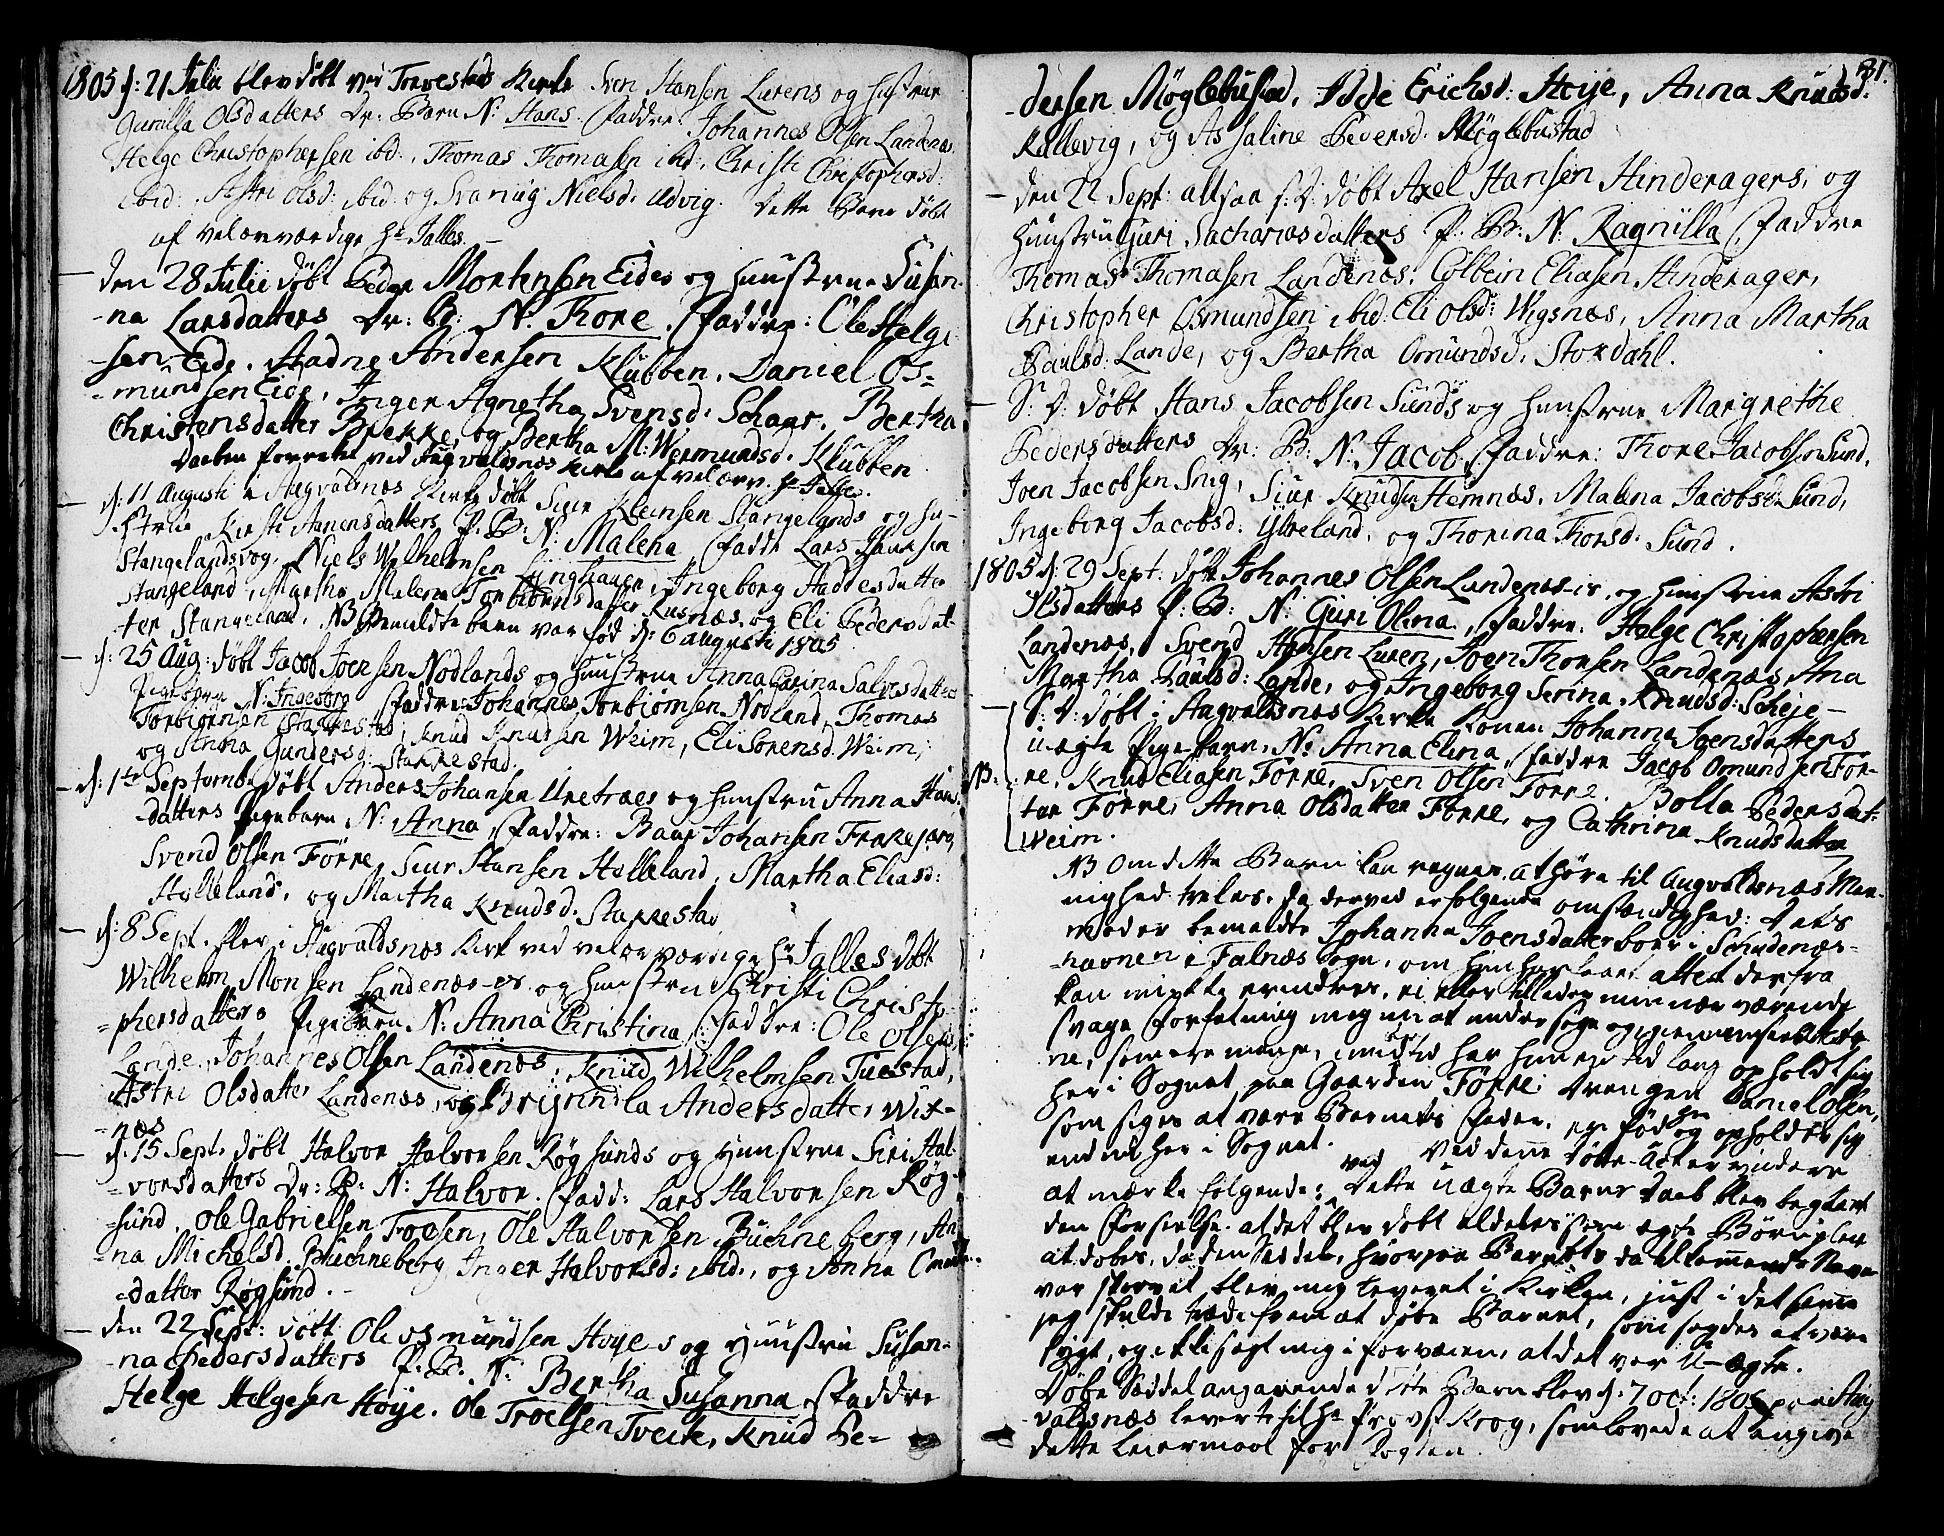 1805 d: 21 Julii blev døbt ved Torvestads Kirke Sven Hansen Lurens og hustrue
Gunilla Olsdatters Dr: Barn N: Hans. Faddre: Johannes Olsen Landenæs
Helge Christophersen ibd:, Thomas Thomasen ibid:, Christi Christophersd:
ibid: Astri Olsd: ibid: og Svanug Nielsd: Udvig. Dette Barn døbt
af velærværdige Hr Jalles.
den 28 Julii døbt Peder Mortensen Eides og hustrue Susan-
-na Larsdatters Dr: B: N. Thore. Faddre: Ole Helge-
-sen Eide, Aadne Andersen Klubben, Daniel Os-
-mundsen Eide, Inger Agnetha Svensd: Schaar, Bertha
Christensdatter Brekke, og Bertha M: Wermundsd: Klubben
Daaben forrettet ved Augvaldsnæs Kirke af velærv. Hr Jalles.
d: 11 Augusti i Augvaldsnæs Kirke døbt Siur Steinsen Stangelands og hu-
strue Kirsti Hanensdatters P: B: N: Malena, Faddre Lars Hansen
Stangelandsvog, Niels Wilhelmsen Linghauen, Ingeborg Haddesdatter
Stangeland, Martha Malena Torbiørnsdatter Rusnæs, og Eli Pedersdat-
-ter Stangeland. NB Bemeldte barn var fød d: 6 augusti 1805
d: 25 Aug: døbt Jacob Joensen Nodlands og hustrue Anna Carina Salvesdatters
Pigebarn N: Ingeborg Faddre Johannes Torbiørnsen Nodland, Thomas
Torbiørnsen Stakkestad, Knud Knudsen Weim, Eli Sørensd: Weim,
og Anna Gundersd: Stakkestad.
d: 1te Septembr døbt Anders Johansen Uretræes og hustru Anna Hans-
datters Pigebarn N: Anna, Faddre: Baar Johansen Frekesærg,
Svend Olsen Førre, Siur Hansen Helleland, Martha Eliasd:
Helleland, og Martha Knudsd: Stakkestad
d: 8 Sept. blev i Augvaldsnæs Kirke ved velærværdige Hr Jalles døbt
Wilhelm Monsen Landenæs-es og hustrue Christi Christo-
-phersdatters Pigebarn N: Anna Christina, Faddre: Ole Olsen
Lande, Johannes Olsen Landenæs, Knud Wilhelmsen Tuestad,
Astri Olsdatter Landenæs, og Brynnilla Andersdatter Wix-
-næs
d: 15 Sept. døbt Halvor Halvorsen Røgsunds og hustrue Siri Hal-
-vorsdatters Dr: B: N: Halvor. Fadd: Lars Halvorsen Røg-
-sund, Ole Gabrielsen Froesen, Ole Halvorsen Buchneberg, An-
-na Michelsd: Buchneberg, Inger Halvorsd: ibid:, og Anna
-datter Røgsund.
den 22 Sept: døbt Ole Osmundsen Høyes og hustrue Susan-
-na Pedersdatters P: B. N: Bertha Susanna, Faddre
Helge Helgesen Høije, Ole Troelsen Tveite, Knud Pe-
81.
-dersen Møglebustad, Adde Erichsd: Høije, Anna Knudsd:
Kallevig, og Assaline Pedersd: Møglebustad
den 22 Sept: altsaa s: D: døbt Axel Hansen Hinderagers, og
hustru Guri Sachariasdatters P: B: N: Ragnilla, Faddre
Thomas Thomasen Landenæs, Colbein Eliasen Hinderager,
Christopher Osmundsen ibid: Eli Olsd: Wigsnæs, Anna Martha
Paulsd: Lande, og Bertha Omundsd: Stordahl.
S: D: døbt Hans Jacobsen Sunds og hustrue Margrethe
Pedersdatters Dr: B: N: Jacob. Faddre: Thore Jacobsen Sund,
Joen Jacobsen Snig, Siur Knudsen Hemnæs, Malena Jacobsd: Sund,
Ingeborg Jacobsd: Ytreland, og Thorina Thorsd: Sund.
1805 d: 29 Sept: døbt Johannes Olsen Landenæs-is og hustrue Astri
Olsdatters P: B: N: Guri Olena, Faddre: Helge Christophersen
Landenæs, Svend Hansen Luren, Joen Thorsen Landenæs, Ana
Martha Paulsd: Lande, og Ingeborg Serina Knudsd: Scheje
S: D: døbt i Augvaldsnæs Kirke Konen Johanna Joensdatters
uægte Pigebarn, N: Anna Elina, Faddre Jacob Omundsen Før-
NB: re, Knud Eliasen Førre, Sven Olsen Førre, Bolla Pedersdat-
ter Førre, Anna Olsdatter Førre, og Cathrina Knudsdatter
Weim.
NB Om dette Barn kan regnes at høre til Augvaldsnæs Me-
nighed tveles, da derved er følgende omstændighed: Dets
moder bemeldte Johanna Joensdatter boer i Schudenæs-
-havnen i Falnæs Sogn, om hun har havt attest derfra
kan mig ikke erindres, ei eller tillader min nærværende
svage Forfatning mig nu at undersøge og igiennemsee Attester-
ne, som ere mange, imidlertid har hun en tid lang opholdt sig
her i Sognet paa Gaarden Førre; drengen Daniel Olsen,
som siges at være Barnets Fader, er fød og opholder sig
endnu her i Sognet. Ved denne Døbe-Acte er endvidere
at mærke følgende: ved dette uægte Barns Daab blev begaaet
den Forseelse, at det blev døbt aldeles som ægte Børn pleie
at døbes, da den Seddel, hvorpaa Barnets og Vedkommendes Navne
var skrevet blev mig leveret i Kirken, just i det samme
jeg skulde træde frem at døbe Barnet, som sagdes at være
sygt, og ikke sagt mig i forveien, at det var U-ægte.
Døbe Seddel angaaende dette Barn blev d: 7 Oct: 1805 paa Aug-
valdsnæs leveret til Hr Provst Krog, som lovede at angive
dette Leiermaal for Fogden.